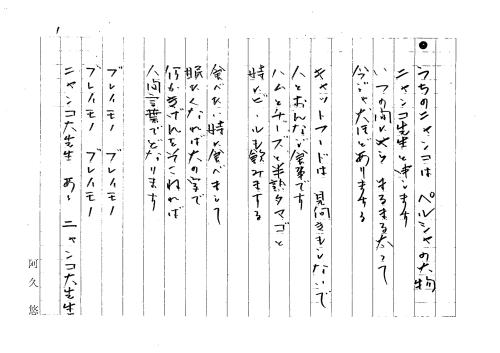 うちのニャンコは ペルシャの大物
ニャンコ先生と申します
いつの間にやら まるまる太って
今じゃ犬ほどあります
キャットフードは 見向きもしないで
人とおんなじ食事です
ハムとチーズと半熟タマゴと
時にビールも飲みまする
食べたい時に食べまして
眠たくなれば大の字で
何かきげんをそこねれば
人間言葉でどなります
ブレイモノ ブレイモノ
ブレイモノ ブレイモノ
ニャンコ大先生 あゝ ニャンコ大先生
阿久 悠